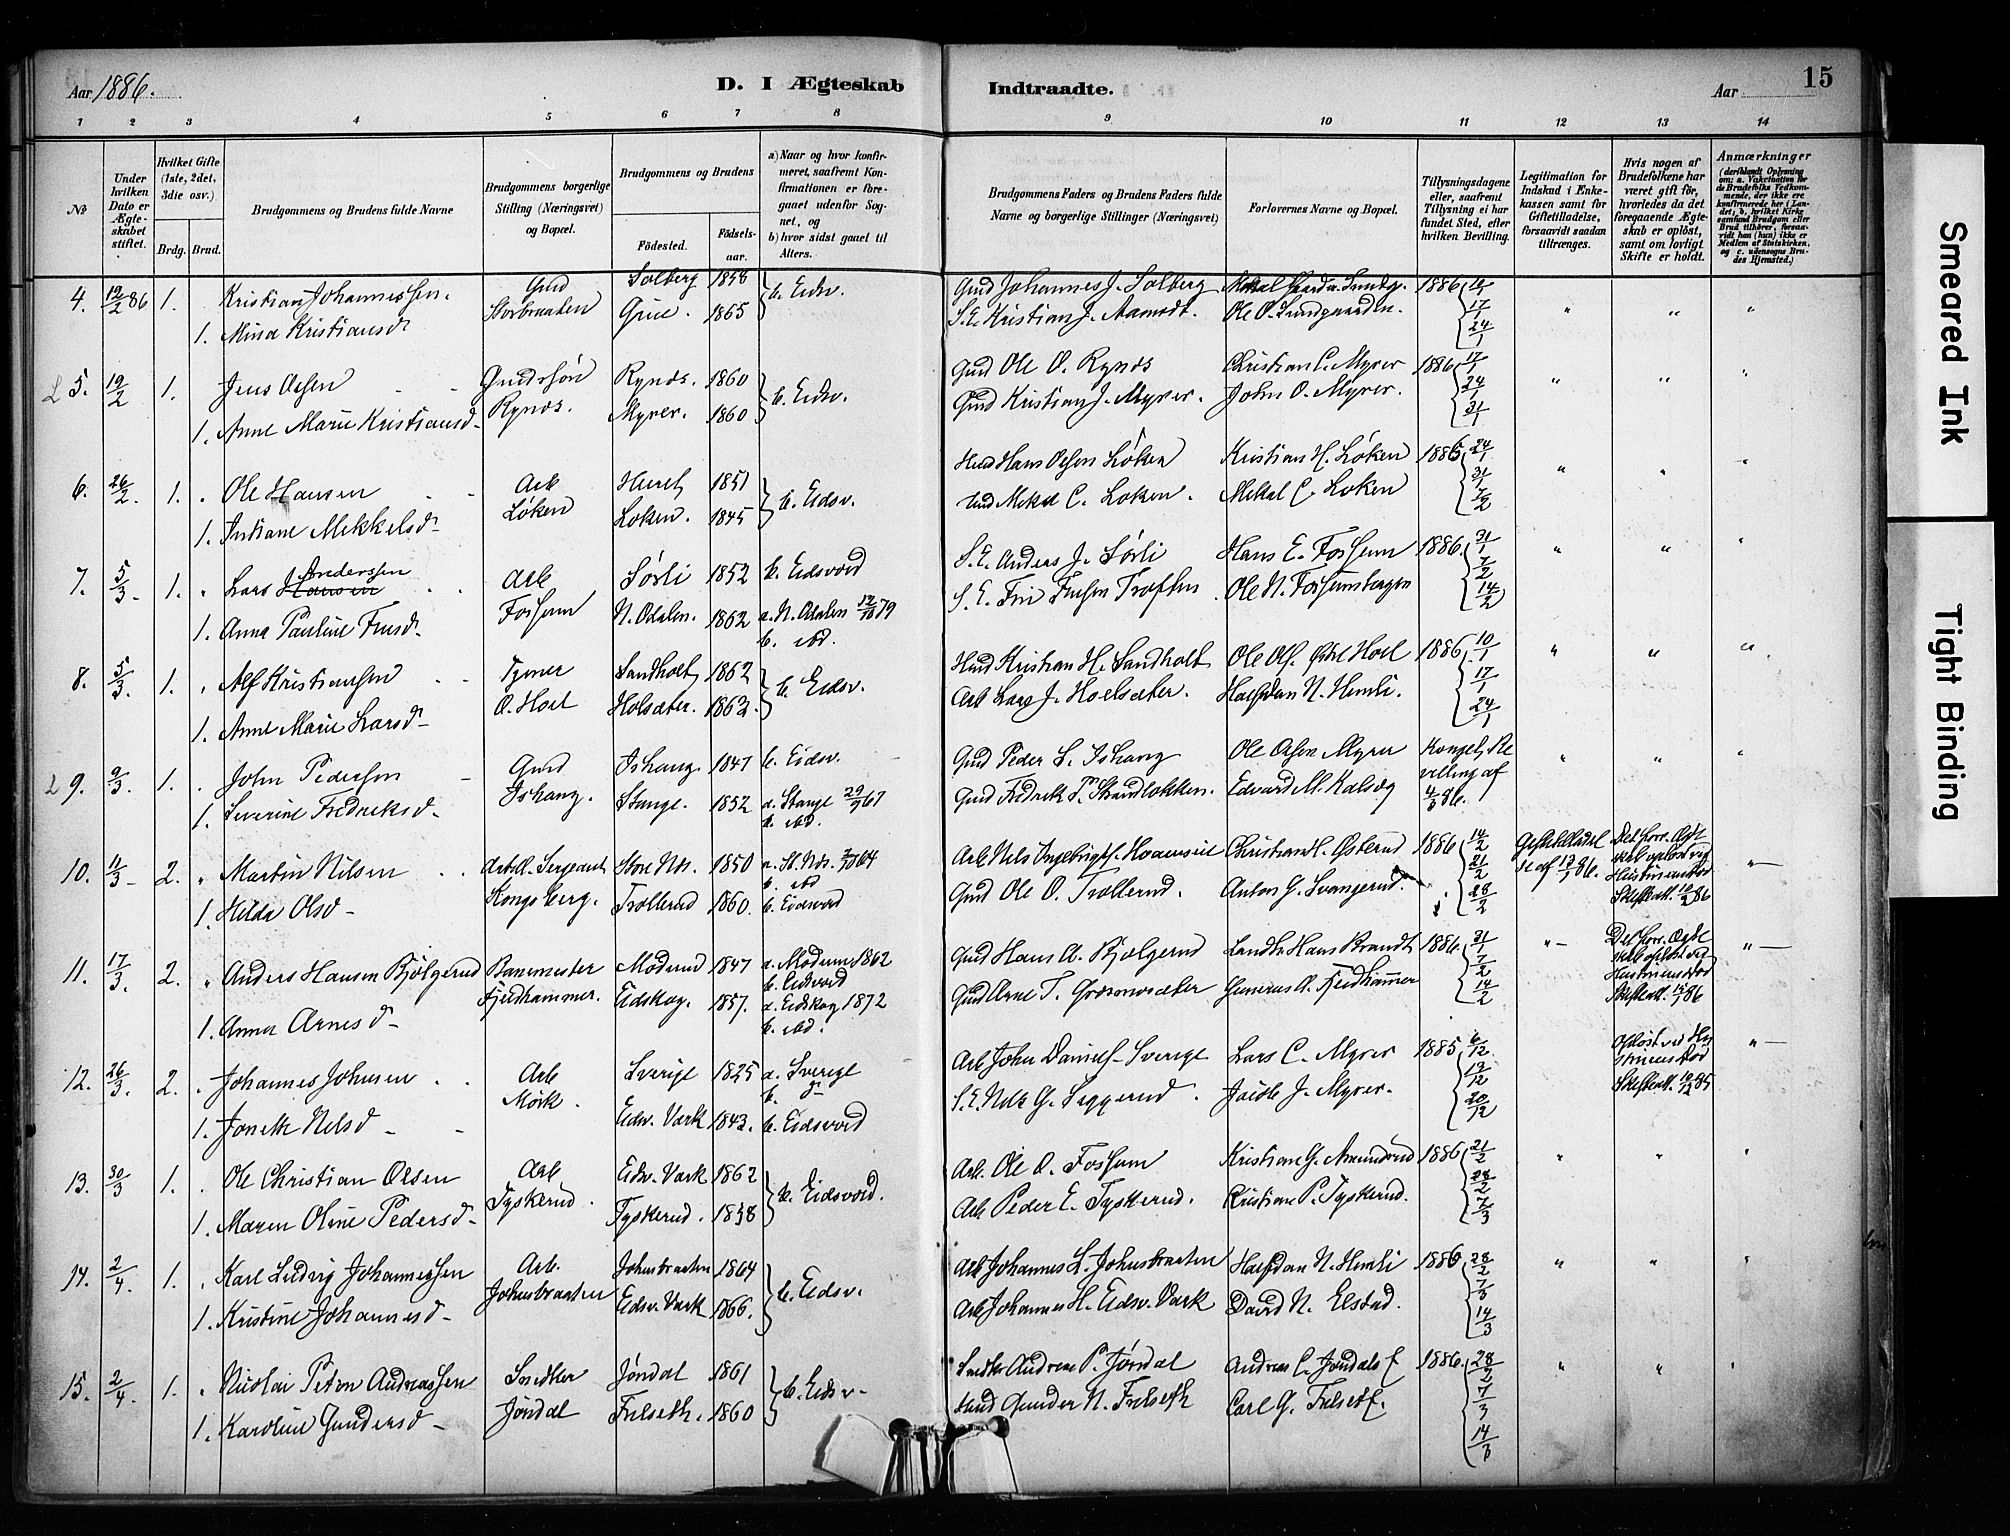 Aar 1886.
D. I Ægteskab Indtraadte.
Aar 15
1 2 3 4 5 6 7 8 9 10 11 12 13 14
№
Under hvilken Dato er Ægteskabet stiftet.
Hvilket Gifte (1ste, 2det, 3die osv.)
Brdg. Brud.
Brudgommens og Brudens fulde Navne
Brudgommens borgerlige Stilling (Næringsvei) og Bopæl.
Brudgommens og Brudens
Fødested.
Fødselsaar.
a) Naar og hvor konfirmeret, saafremt Konfirmationen er foregaaet udenfor Sognet, og
b) hvor sidst gaaet til Alters.
Brudgommens Faders og Brudens Faders fulde Navne og borgerlige Stillinger (Næringsvei)
Forlovernes Navne og Bopæl.
Tillysningsdagene eller, saafremt Tillysning ei har fundet Sted, efter hvilken Bevilling.
Legitimation for Indskud i Enkekassen samt for Giftetilladelse, forsaavidt saadan tiltrænges.
Hvis nogen af Brudefolkene har været gift før, hvorledes da det foregaaende Ægteskab er opløst, samt om lovligt Skifte er holdt.
Anmærkninger (deriblandt Oplysning om: a. Vakcination for de Brudefolks Vedkommende, der ikke ere konfirmerede her i Landet; b. hvilket Kirkesamfund Brudgom eller Brud tilhører, forsaavidt han (hun) ikke er Medlem af Statskirken, og c. udensogns Brudes Hjemsted.)
4. 19/2 86 1. Kristian Johannessen. Gmd Solberg 1858 b. Eidsv. Gmd Johannes J. Solberg 1886 10/1
1. Mina Kristiansd Storbraaten Grue. 1865 S.E. Kristian J. Aamodt. Ole O. Sundgaarden. 17/1 24/1
5. 19/2 1. Jens Olsen Gmdssøn Rynds. 1860 b. Eidsv. Gmd Ole O. Rynds Christian C. Myrer 1886 17/1
1. Anne Marie Kristiansd Rynds. Myrer. 1860 Gmd Kristian J. Myrer. John O. Myrer. 24/1 31/1
6. 26/2. 1. Ole Hansen Arb 1851 b. Eidsv. Hmd Hans Olsen Løken Kristian H. Løken 1886 24/1
1. Mekkelsd Løken Løken. 1845 Hmd Mekal C. Løken. Mekal C. Løken 31/1 7/2
7. 5/3 1. Lars Anderssen Hansen Arb Sørli 1852 b. Eidsvold S.E. Anders J. Sørli Hans E. Fossum 1886 31/1
1. Anna Pauline Finsd. Fossum N. Odalen. 1862 a. N. Odalen 12/10 79 b. ibd. S.E. Fin Finsen Træften Ole N. Fossumbergen 7/2 14/2
8. 5/3. 1. Alf Kristiansen Sandholt 1862 b. Eidsv. Hmd Kristian H. Sandholt Hoel 1886 10/1
1. Anne Marie Larsd Ø. Hoel Holsæter. 1862. Arb Lars J. Hoelsæter. Halfdan N. Hemli. 17/1 24/1
9. 9/3. 1. John Pedersen Gmd Ishang. 1847 b. Eidsv. Gmd Peder S. Ishang Ole Olsen Myrer Kongel. Bevilling af
1. Severine Fredriksd. Ishang. Stange. 1852 a. Stange 29/9 67 b. ibd. Gmd Fredrik P. Strandløkken. Edvard M. Kalsæg 4/3 86.
10. 11/3 2. Martin Nilsen Sergeant Store Næs. 1850 a. St. Næs. 2/10 64 b. ibd Arb Nels Ingebrigts. Christian H. Østerud 1886 14/2 Giftetilladelse af 17/1 86. Det forr. Ægteskab opløst ved Hustruens Død
1. Hilda Olsd Kongsberg. Trøllerud 1860. b. Eidsvold Gmd Ole O. Trøllerud. Anton G. Svangerud. 21/2 28/2 Skifteatt. 10/2 86
11. 17/3. 2. Anders Hansen Bjølgerud Banemester Modum 1847 a. Modum 1862 b. Eidsvold Gmd Hans A. Bjølgerud Landh. Hans Brandt 1886. 31/1 Det forr. Ægteskab opløst ved Hustruens Død
1. Anna Arnesd Fjeldhammer. Eidskog. 1857. a. Eidskog 1872 b. ibd. Gmd Arne T. Grasmosæter Gunerus A. Fjeldhammer 7/2 14/2 Skifteatt. 15/1 86
12. 26/3. 2. Johannes Johnsen Arb Sverige 1825 a. Sverige b. d Arb John Daniels. Sverige Lars C. Myrer 1885 6/12. Opløst ved Hustruens Død
1. Nelsd Mørk. Eidsv. Værk 1843. b. Eidsvold S.E. Nels G. Seggerud. J. Myrer. 13/12 20/12 Skifteatt. 19/12 85
13. 30/3 1. Ole Christian Olsen Arb Eidsv. Værk 1862 b. Eidsvold. Arb. Ole O. Fossum Kristian G. Amundrud 1886 21/2
1. Maren Oline Pedersd. Tyskerud. Tyskerud. 1858 Arb Peder E. Tyskerud. Kristian P. Tyskerud. 28/2 7/3
14. 2/4. 1. Karl Ludvig Johannessen Arb. Johnsbraaten 1864 b. Eidsv. Arb Johannes L. Johnsbraaten Halfdan N. Hemli 1886 28/2
1. Kristine Johannesd Johnsbraaten Eidsv. Værk 1866. Arb Johannes H. Eidsv. Værk David N. Elstad. 7/3 14/3
15. 2/4. 1. Nicolai Petter Andreassen Snedker Jøndal 1861 b. Eidsv. Snedker Andreas P. Jøndal Andreas C. Jøndal 1886. 28/2
1. Karoline Gundersd Jøndal Frilseth. 1860 Hmd Gunder N. Frilseth Carl G. Frilseth. 7/3 14/3
Smeared Ink
Tight Binding